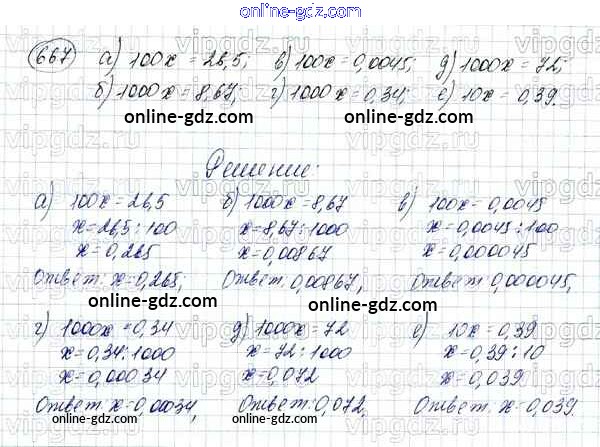 online-gdz.com
667 а) 100x = 26,5; в) 100x = 0,0045; д) 1000x = 72;
б) 1000x = 8,67; г) 1000x = 0,34; е) 10x = 0,39.
online-gdz.com online-gdz.com
Решение:
а) 100x = 26,5 б) 1000x = 8,67 в) 100x = 0,0045
x = 26,5 : 100 x = 8,67 : 1000 x = 0,0045 : 100
x = 0,265 x = 0,00867 x = 0,000045
Ответ: x = 0,265; Ответ: 0,00867, Ответ: 0,000045,
online-gdz.com online-gdz.com online-gdz.com
г) 1000x = 0,34 д) 1000x = 72 е) 10x = 0,39
x = 0,34 : 1000 x = 72 : 1000 x = 0,39 : 10
x = 0,00034 x = 0,072 x = 0,039
Ответ: x = 0,00034, Ответ: 0,072, Ответ: x = 0,039.
online-gdz.com online-gdz.com online-gdz.com